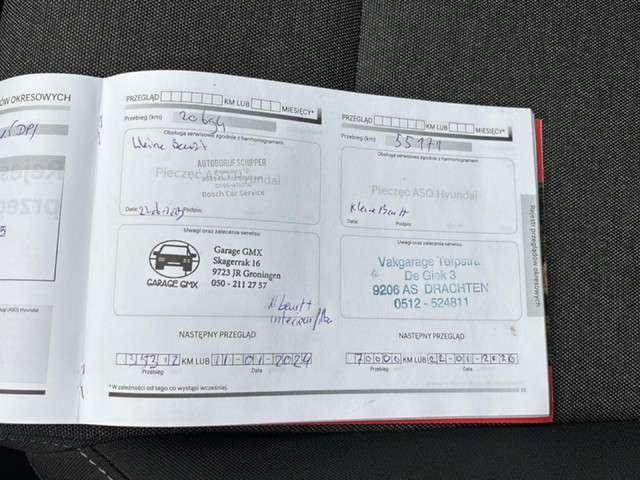 ÓW OKRESOWYCH
PRZEGLĄD KM LUB MIESIĘCY*
Przebieg (km) 20694
Obsługa serwisowa zgodnie z harmonogramem:
kleine Beurt
AUTOBEDRIJF SCHIPPER
Pieczęć ASO Hyundai
Bosch Car Service
Data: Podpis:
Uwagi oraz zalecenia serwisu
GARAGE GMX
Garage GMX
Skagerrak 16
9723 JR Groningen
050 - 211 27 57
NASTĘPNY PRZEGLĄD
KM LUB 11-01-2024
Przebieg Data
*W zależności od tego co wystąpi wcześniej.
PRZEGLĄD KM LUB MIESIĘCY*
Przebieg (km) 55171
Obsługa serwisowa zgodnie z harmonogramem:
Pieczęć ASO Hyundai
Kleine Beurt
Data: Podpis:
Uwagi oraz zalecenia serwisu
Vakgarage Terpstra
De Giek 3
9206 AS DRACHTEN
0512 - 524811
NASTĘPNY PRZEGLĄD
70000 KM LUB 22-01-2026
Przebieg Data
Rejestr przeglądów okresowych